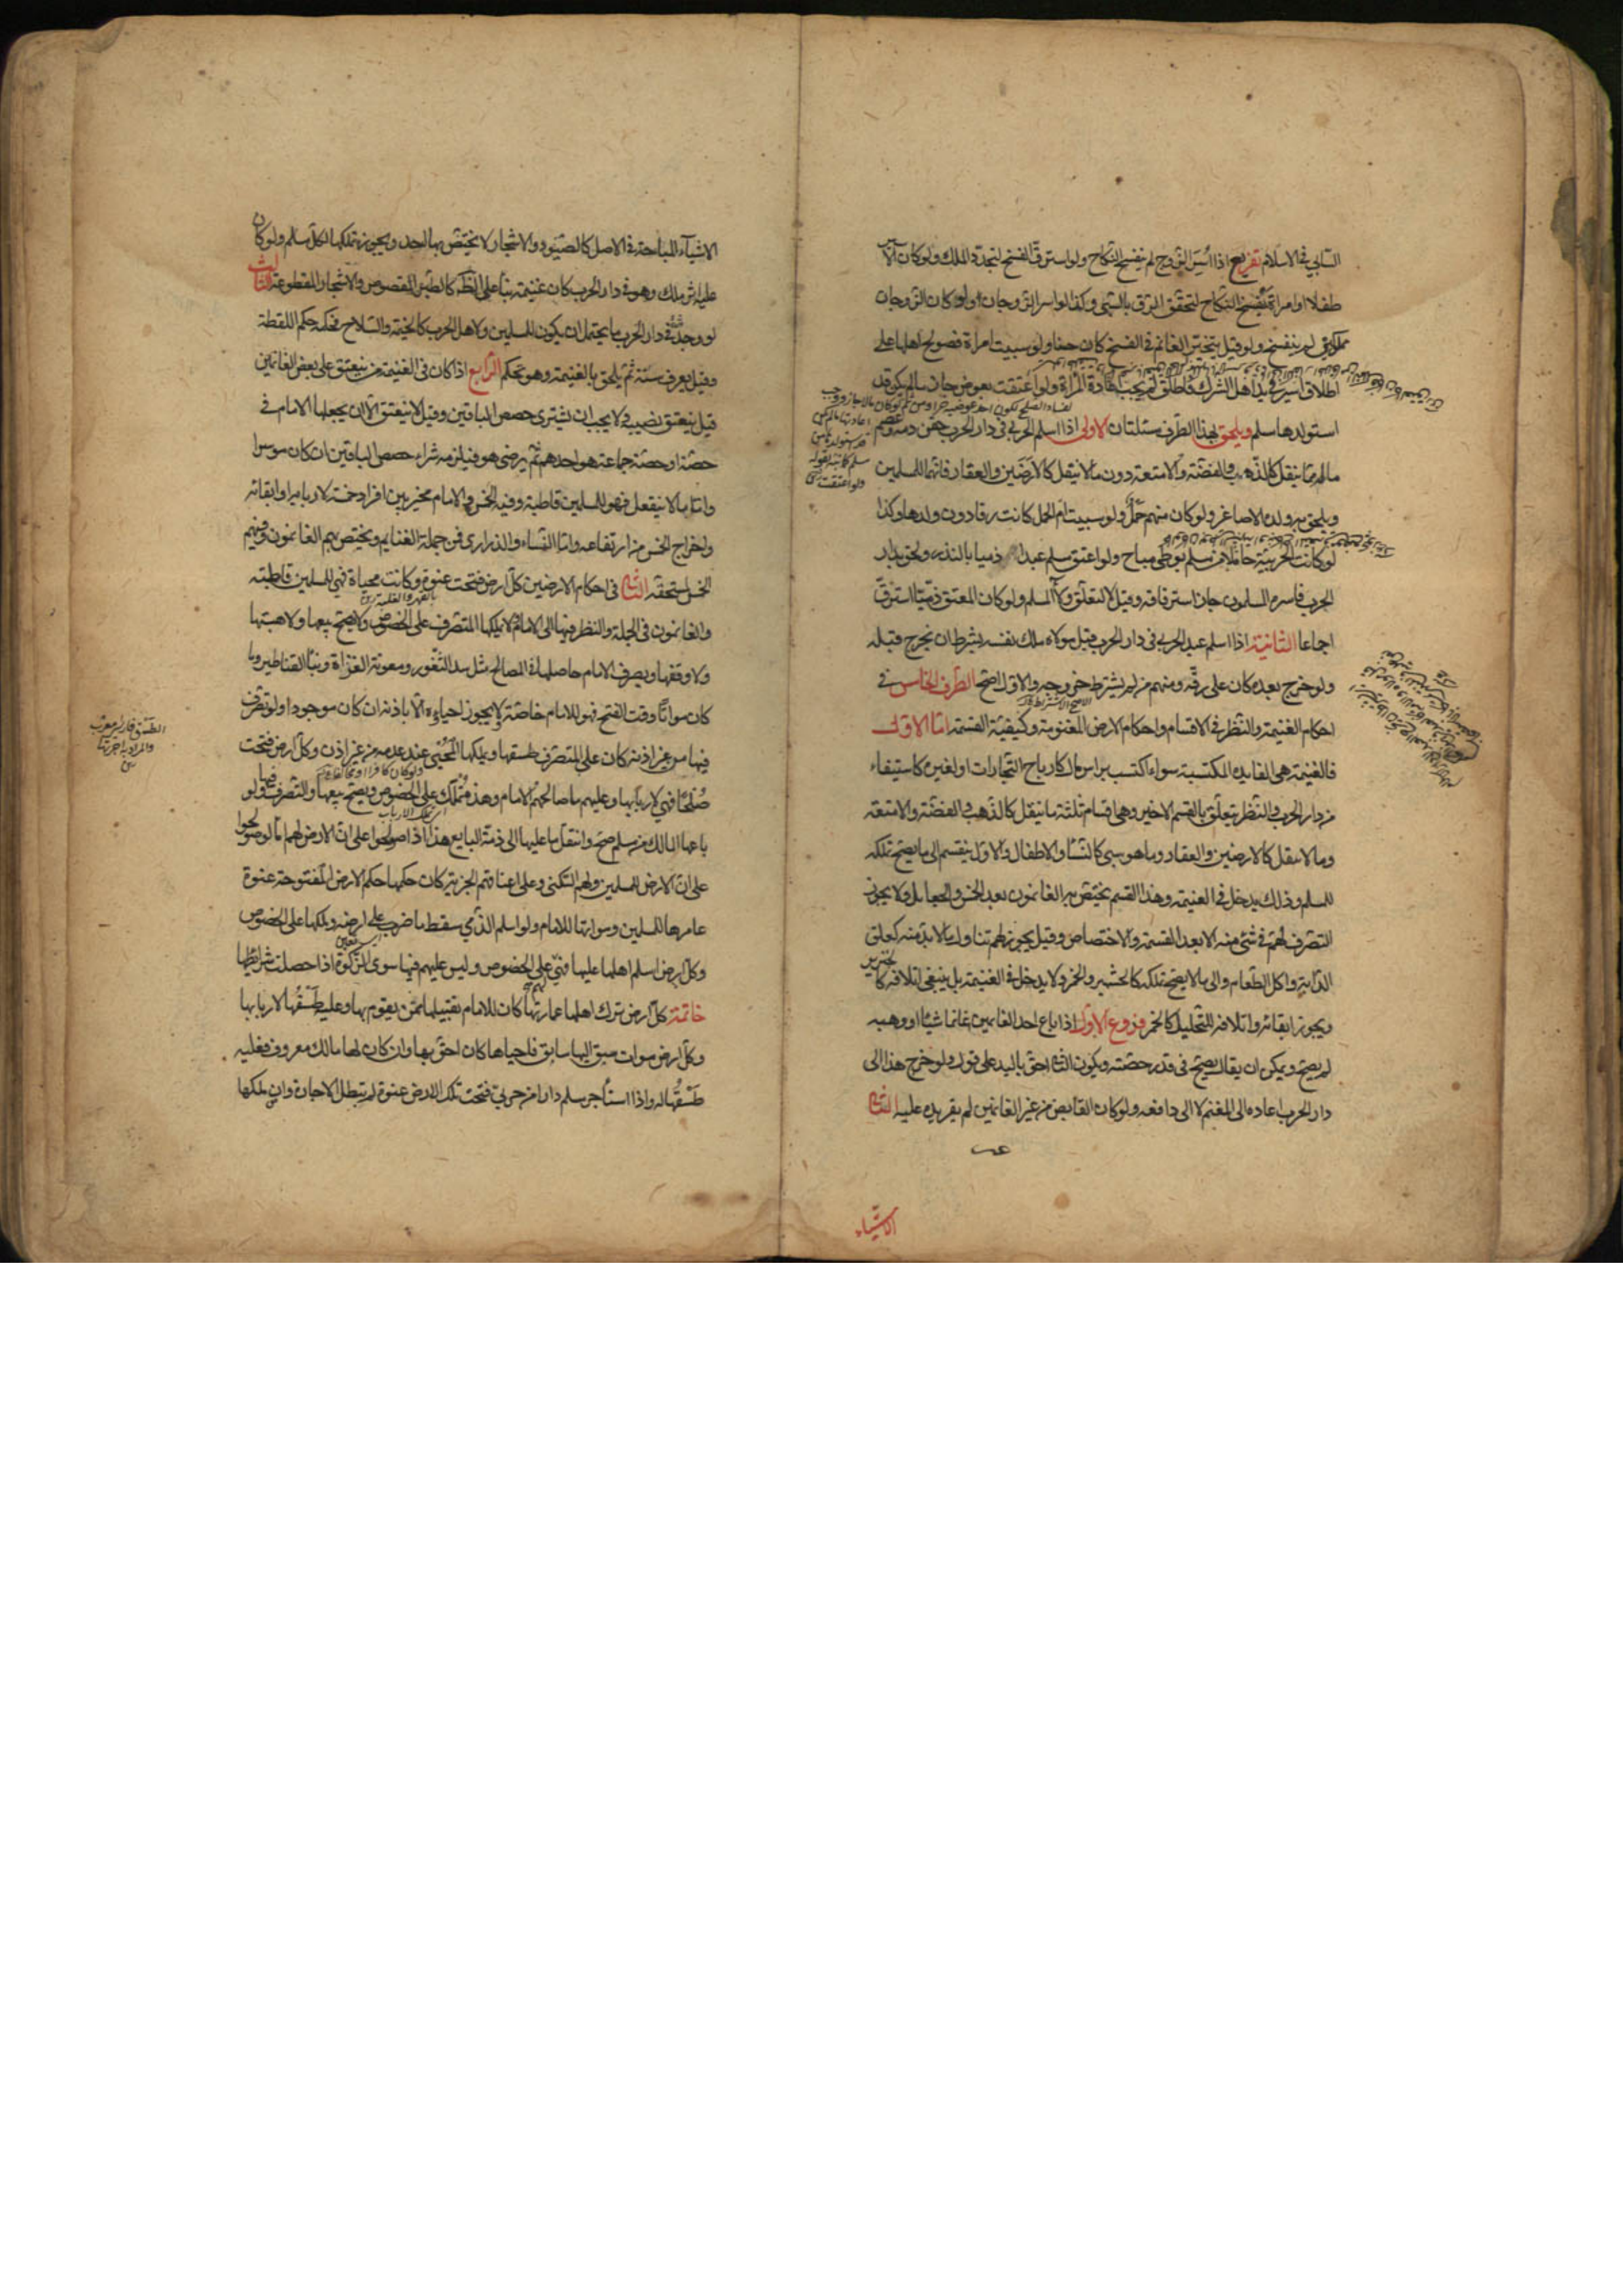 السابي في الاسلام تفريع اذا اسر الزوج لم ينفسخ النكاح ولو استرق انفسخ لتجدد الملك ولو كان الاسير
طفلا او امراة انفسخ النكاح لتحقق الرق بالسبي وكذا لو اسر الزوجان ولو كان الزوجان
مملوكين لم ينفسخ ولو قيل بتخير الغانم في الفسخ كان حسنا ولو سبيت امراة فصولح اهلها على
اطلاق اسير في يد اهل الشرك فاطلق لم يجب اعادة المراة ولو اعتقت بعوض جاز ما لم يكن قد
استولدها مسلم ويلحق بهذا الطرف مسئلتان الاولى اذا اسلم الحربي في دار الحرب حقن دمه وعصم
ماله مما ينقل كالذهب والفضة والامتعة دون ما لا ينقل كالارضين والعقار فانها للمسلمين
ويلحق به ولده الاصاغر ولو كان منهم حمل ولو سبيت ام الحمل كانت رقا دون ولدها وكذا
لو كانت الحربية حاملا من مسلم بوطى مباح ولو اعتق مسلم عبدا ذميا بالنذر ولحق بدار
الحرب فاسره المسلمون جاز استرقاقه وقيل لا لتعلق ولاء المسلم ولو كان المعتق ذميا استرق
اجماعا الثانية اذا اسلم عبد الحربي في دار الحرب قبل مولاه ملك نفسه بشرط ان يخرج قبله
ولو خرج بعده كان على رقه ومنهم من لم يشترط خروجه والاول اصح الطرف الخامس في
احكام الغنيمة والنظر في الاقسام واحكام الارض المغنومة وكيفية القسمة اما الاول
فالغنيمة هي الفايدة المكتسبة سواء اكتسب براس مال كارباح التجارات او بغيره كما يستفاد
من دار الحرب والنظر يتعلق بالقسم الاخير وهي اقسام ثلثة ما ينقل كالذهب والفضة والامتعة
وما لا ينقل كالارضين والعقار وما هو سبي كالنسا والاطفال والاول ينقسم الى ما يصح تملكه
للمسلم وذلك يدخل في الغنيمة وهذا القسم يختص به الغانمون بعد الخمس والجعايل ولا يجوز
التصرف لهم في شئ منه الا بعد القسمة والاختصاص وقيل يجوز لهم تناول ما لا بد منه كعلق
الدابة واكل الطعام والى ما لا يصح تملكه كالخمر والخنزير ولا يدخل في الغنيمة بل ينبغي اتلافه كالخنزير
ويجوز ابقائه واتلافه للتخليل كالخمر فروع الاول اذا باع احد الغانمين غانما شيئا او وهبه
لم يصح ويمكن ان يقال يصح في قدر حصته ويكون الثاني احق باليد على قول ولو خرج هذا الى
دار الحرب اعاده الى المغنم لا الى دافعه ولو كان القابض من غير الغانمين لم يقر يده عليه الثاني
الاشياء
الاشياء المباحة في الاصل كالصيود والاشجار لا يختص بها احد ويجوز تملكها لكل مسلم ولو كان
عليه اثر ملك وهو في دار الحرب كان غنيمة بناء على الظاهر كالطير المقصوص والاشجار المقطوعة الثالث
لو وجد شئ في دار الحرب ما يحتمل ان يكون للمسلمين ولاهل الحرب كالخيمة والسلاح فحكمه حكم اللقطة
وقيل يعرف سنة ثم يلحق بالغنيمة وهو تحكم الرابع اذا كان في الغنيمة من ينعتق على بعض الغانمين
قيل ينعتق نصيبه ولا يجب ان يشترى حصص الباقين وقيل لا ينعتق الا ان يجعلها الامام في
حصته او حصة جماعة هو احدهم ثم يرضى هو فيلزمه شراء حصص الباقين ان كان موسرا
واما ما لا ينقل فهو للمسلمين قاطبة وفيه الخمس والامام مخير بين افراد خمسه لاربابه او ابقائه
واخراج الخمس من ارتفاعه واما النساء والذراري فمن جملة الغنايم ويختص بهم الغانمون وفيهم
الخمس لمستحقه الثاني في احكام الارضين كل ارض فتحت عنوة وكانت محياة فهي للمسلمين قاطبة
والغانمون في الجملة والنظر فيها الى الامام ولا يملكها المتصرف على الخصوص ولا يصح بيعها ولا هبتها
ولا وقفها ويصرف الامام حاصلها في المصالح مثل سد الثغور ومعونة الغزاة وبناء القناطير وما
كان مواتا وقت الفتح فهو للامام خاصة لا يجوز احياؤه الا باذنه ان كان موجودا ولو تصرف
فيها من غير اذنه كان على المتصرف طسقها ويملكها المحيى عند عدمه من غير اذن وكل ارض فتحت
صلحا فهي لاربابها وعليهم ما صالحهم الامام وهذه تملك على الخصوص ويصح بيعها والتصرف فيها ولو
باعها المالك من مسلم صح وانتقل ما عليها الى ذمة البايع هذا اذا صولحوا على ان الارض لهم اما لو صولحوا
على ان الارض للمسلمين ولهم السكنى وعلى اعناقهم الجزية كان حكمها حكم الارض المفتوحة عنوة
عامرها للمسلمين ومواتها للامام ولو اسلم الذمي سقط ما ضرب على ارضه وملكها على الخصوص
وكل ارض اسلم اهلها عليها فهي على الخصوص وليس عليهم فيها سوى الزكوة اذا حصلت شرائطها
خاتمة كل ارض ترك اهلها عمارتها كان للامام تقبيلها ممن يقوم بها وعليه طسقها لاربابها
وكل ارض موات سبق اليها سابق فاحياها كان احق بها وان كان لها مالك معروف فعليه
طسقها له واذا استأجر مسلم دارا من حربي فتحت تلك الارض عنوة لم تبطل الاجارة وان ملكها